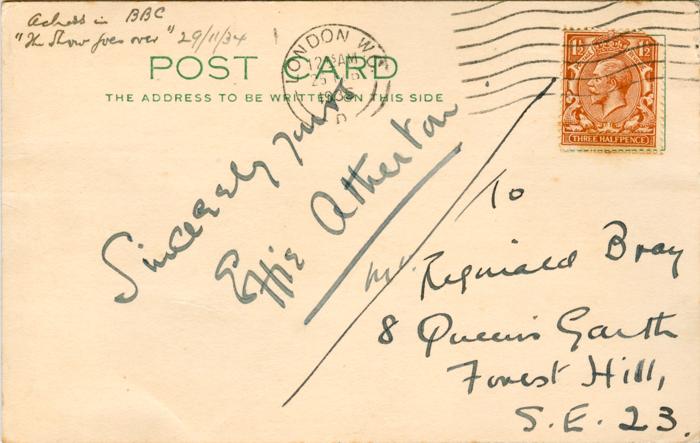 Actress in BBC
"The Show goes over" 29/11/34
POST CARD
THE ADDRESS TO BE WRITTEN ON THIS SIDE
LONDON W.C.
AM
1935
D
1½ 1½
THREE HALFPENCE
Sincerely yours
Effie Atherton
To
Mr. Reginald Bray
8 Queens Garth
Forest Hill,
S.E. 23.